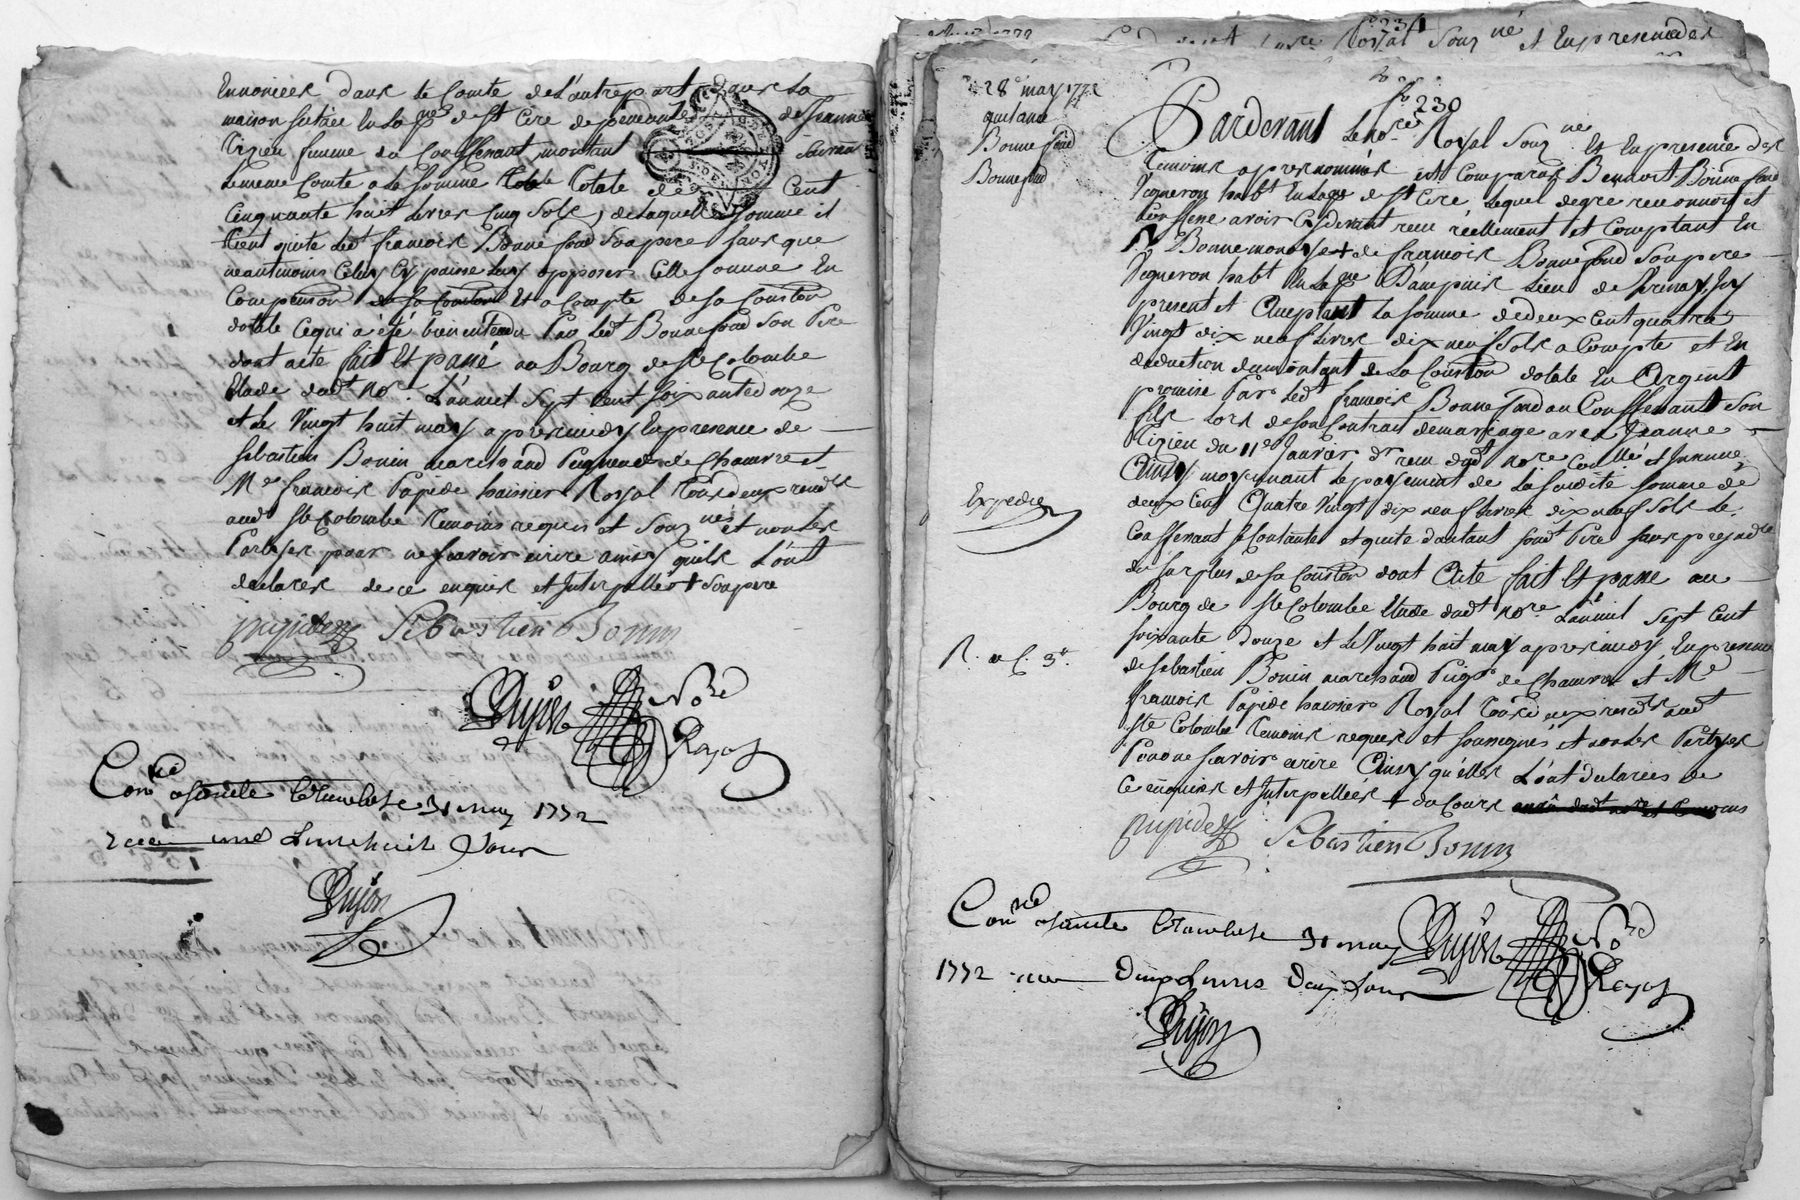 Enoncées dans le Comte de L'autre part, dans La
maison scituée En La p.sse de St Cire de Jeanne
Tixier femme du Confessant, montant Suivant
Le meme Comte a La somme Totale de Cent
Cinquante huit Livres Cinq Sols, de Laquelle somme il
tient quite Led.t francois Bonnefond son pere sans que
neantmoins Celuy Cy puisse Luy opposer Cette somme En
Compenson Et a Compte de sa Conston
dotale Ce qui a été bien entendu Par Led.t Bonnefond Son Pere
dont acte fait Et passé au Bourg de Ste Colombe
Etude dud.t Nore. L'an mil Sept Cent soixante douze
et Le Vingt huit may apres midy En presence de
Sebastien Bonin marchand Peigneur de Chanvre et
Me francois Papide huissier Royal tous deux resid.ts
aud.t Ste Colombe temoins requis et Souz.nés et non Les
Parties pour ne scavoir ecrire ainsy qu'ils L'ont
declarez de ce enquis et Interpellés + Son pere
papide Sebastien Bonin
Dujon Nore
Royal
Con.lé a Sainte Colombe Le 31 may 1772
recu une Livre huit Sous
Dujon
234
Royal Souz.né et En presence des
28 may 1772
quitance
Bonnefond
Bonnefond
fo 230
Pardevant Le Nore Royal Souz.né Et En presence des
temoins apres nommés est Comparu Benoist Bonnefond
Vigneron habt En La p.sse de St Cire Lequel de gre reconnoit et
Confesse avoir Cy devant recu réellement Et Comptant En
Bonne monoye + de francois Bonnefond Son pere
Vigneron habt En La p.sse D'ampuis Lieu de Verenay, Icy
present et acceptant La somme de deux Cent quatre
Vingt dix neuf Livres dix neuf Sols a Compte et En
deduction du montant de La Conston dotale En Argent
promise Par Led.t francois Bonnefond au Confessant Son
fils Lors de son Contrat de mariage avec Jeanne
Tixier du 11e Janvier dr recu dud.t Nore Con.llé et Insinué,
Ainsy moyennant Le payement de La susdite Somme de
deux Cent Quatre Vingt dix neuf Livres dix neuf Sols Le
Confessant se Contante et quite d'autant sond.t Pere sans prejudice
du surplus de sa Conston dont Acte fait Et passé au
Bourg de Ste Colombe Etude dud.t Nore. L'an mil Sept Cent
soixante douze et Le Vingt huit may apres midy, En presence
de Sebastien Bonin marchand Peigr de Chanvre et Me
francois Papide huissier Royal tous deux resid.ts aud.t
Ste Colombe temoins requis et sousignés et non Les Parties
Pour ne scavoir ecrire Ainsy qu'elles L'ont declarées de
Ce enquises et Interpellées + du Cours
Expediée
R. a C. 3
papide Sebastien Bonin
Con.lé a Sainte Colombe Le 31 may
1772 recu Deux Livres Deux Sous
Dujon Nore
Royal
Dujon